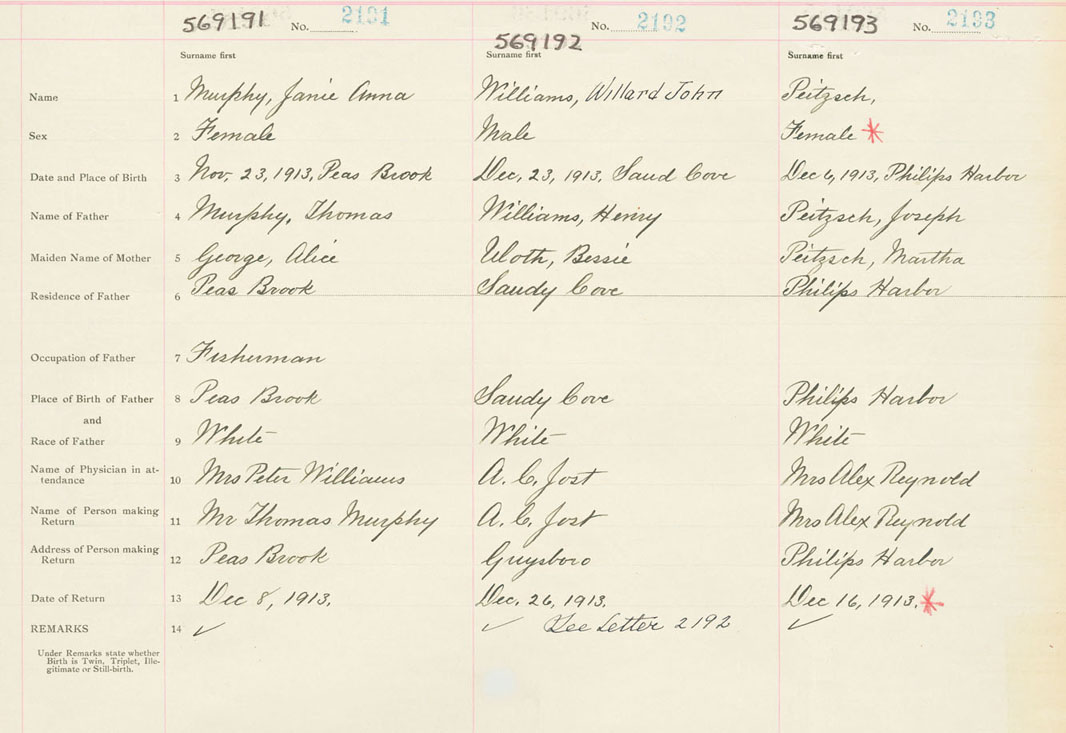 569191 No. 2191 569192 No. 2192 569193 No. 2193
Surname first Surname first Surname first
Name 1 Murphy, Janie Anna Williams, Willard John Peitzsch,
Sex 2 Female Male Female *
Date and Place of Birth 3 Nov. 23, 1913, Peas Brook Dec. 23, 1913, Sand Cove Dec 6, 1913, Philips Harbor
Name of Father 4 Murphy, Thomas Williams, Henry Peitzsch, Joseph
Maiden Name of Mother 5 George, Alice Uloth, Bessie Peitzsch, Martha
Residence of Father 6 Peas Brook Sandy Cove Philips Harbor
Occupation of Father 7 Fisherman
Place of Birth of Father 8 Peas Brook Sandy Cove Philips Harbor
and
Race of Father 9 White White White
Name of Physician in at-
tendance 10 Mrs Peter Williams A. C. Jost Mrs Alex Reynold
Name of Person making
Return 11 Mr Thomas Murphy A. C. Jost Mrs Alex Reynold
Address of Person making
Return 12 Peas Brook Guysboro Philips Harbor
Date of Return 13 Dec 8, 1913. Dec. 26, 1913. Dec 16, 1913. *
REMARKS 14 ✓ ✓ See Letter 2192 ✓
Under Remarks state whether
Birth is Twin, Triplet, Ille-
gitimate or Still-birth.